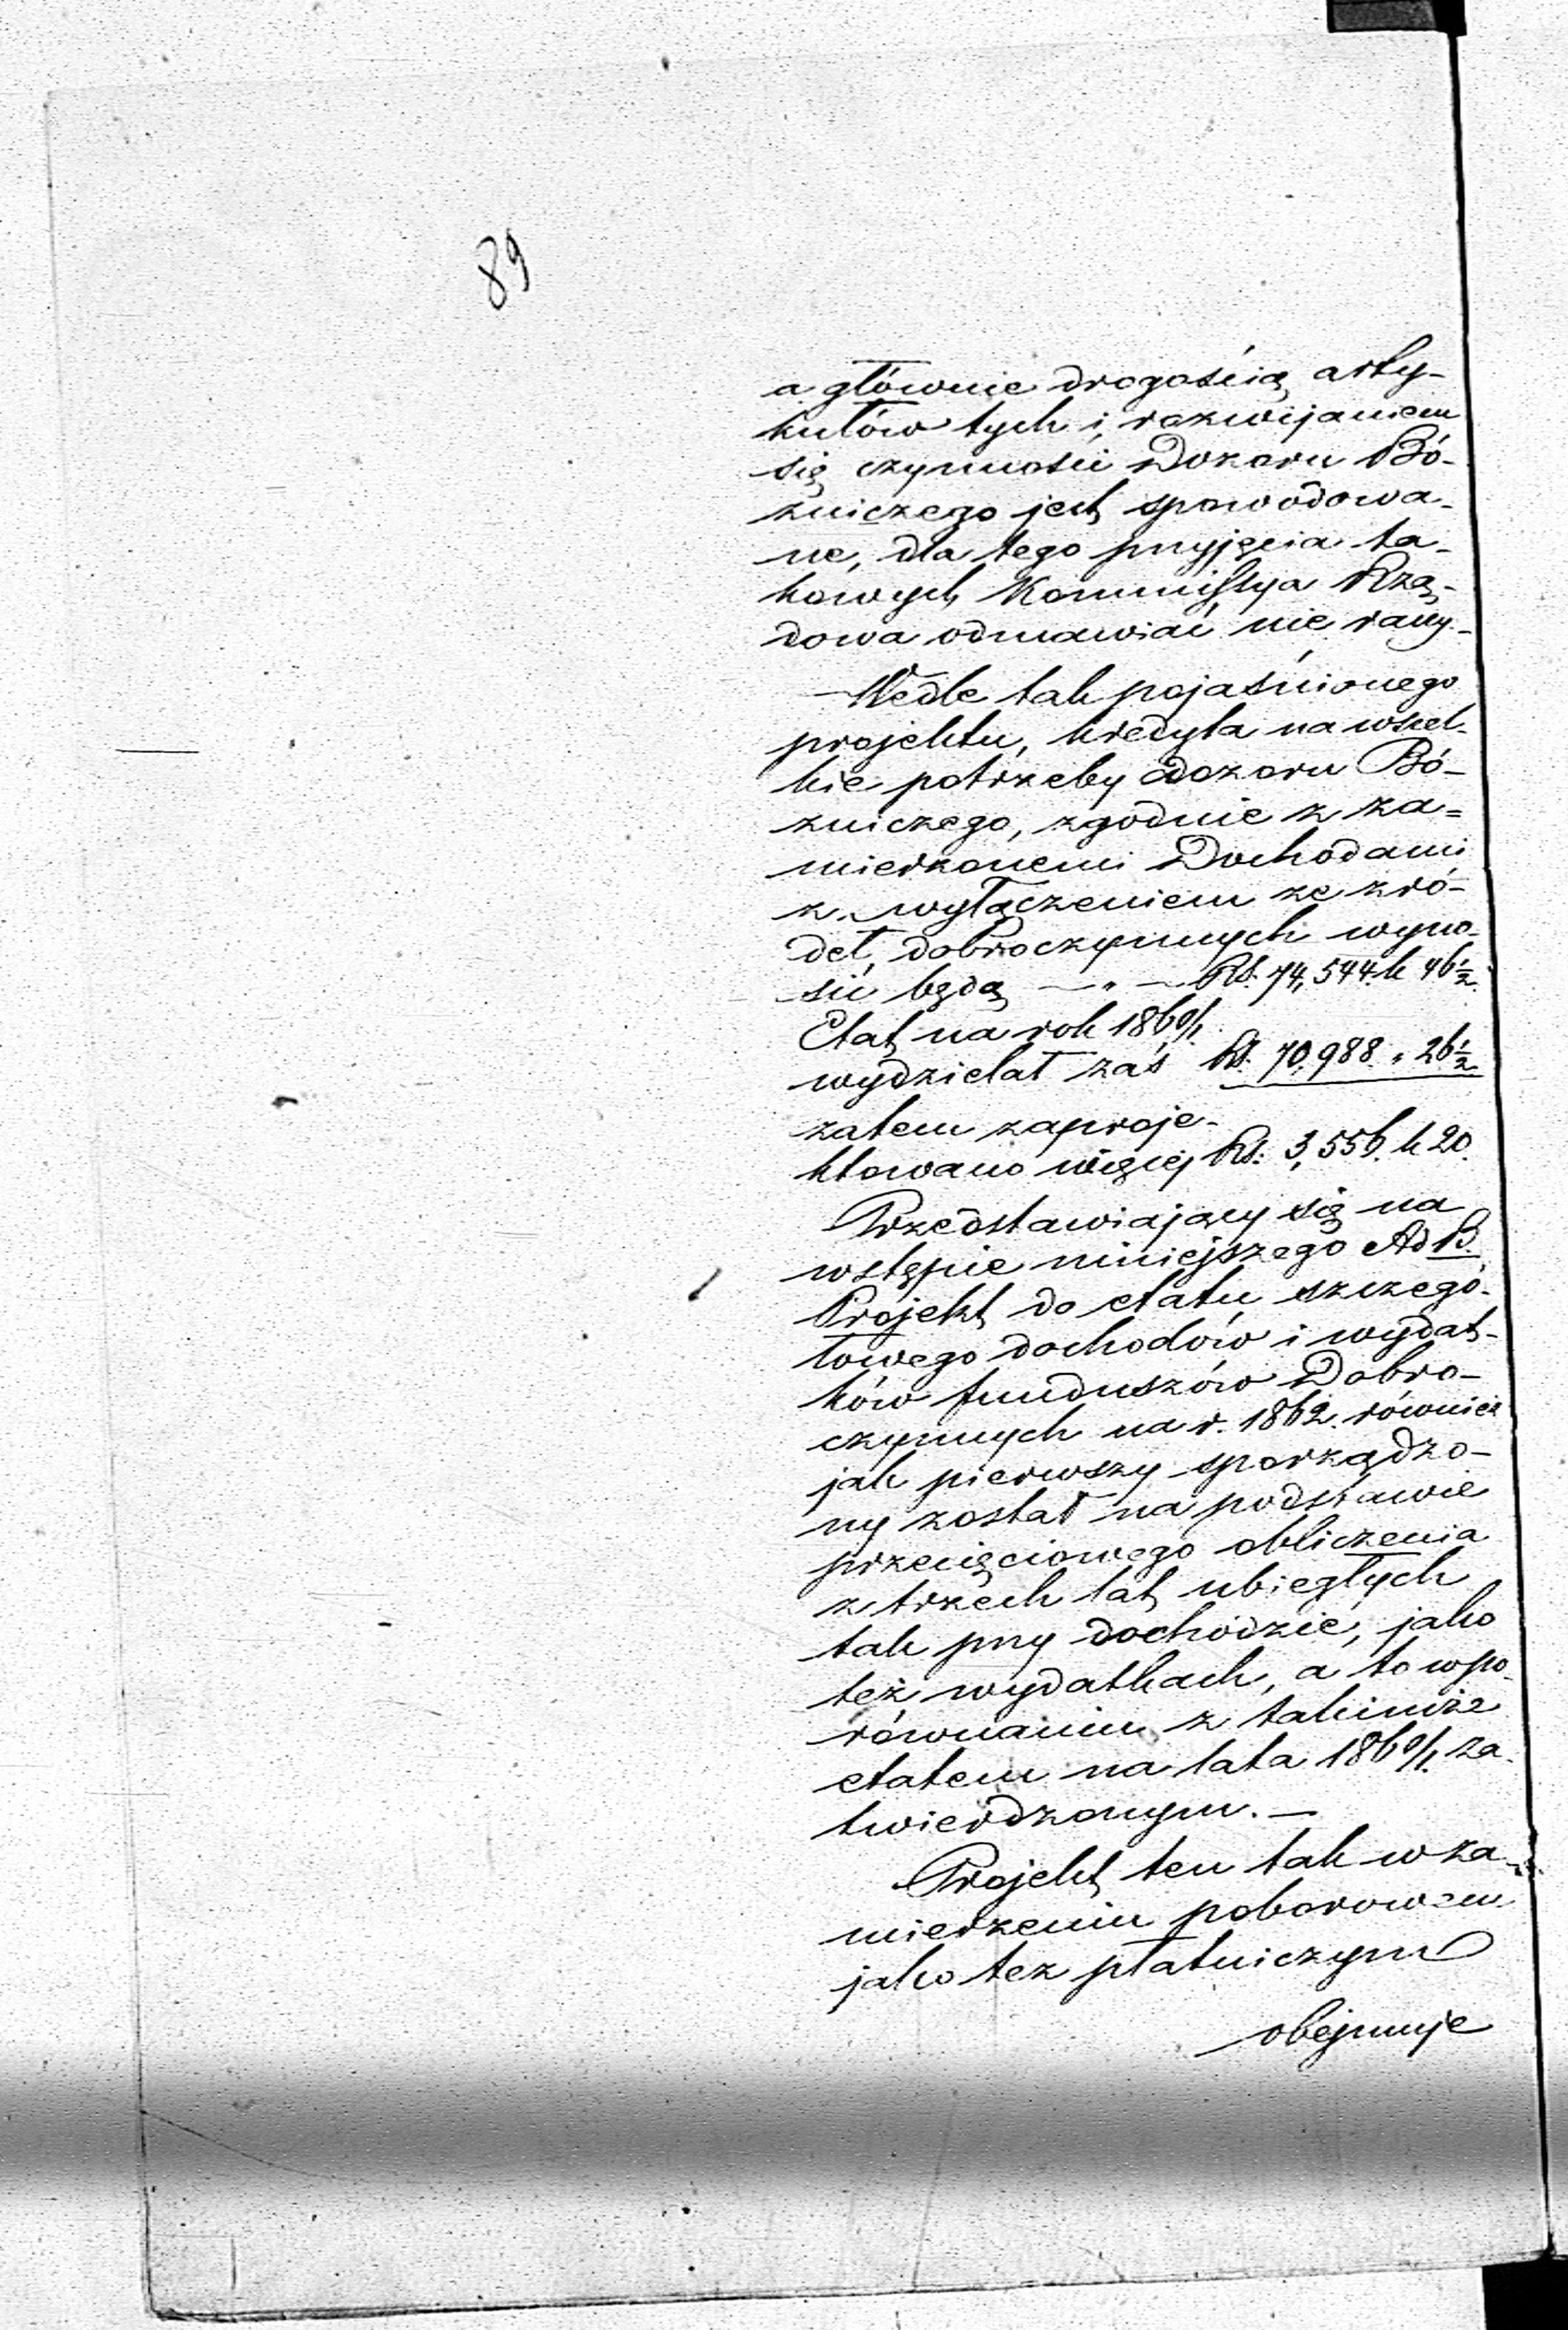 89
a głównie drogością arty-
kułów tych i rozwijaniem
się czynności Dozoru Bó-
zniczego jest spowodowa-
ne, dla tego przyjęcia ta-
kowych Kommissya Rzą-
dowa odmawiać nie raczy.-
Wedle tak pojaśnionego
projektu, kredyta na wszel-
kie potrzeby dozoru Bó-
zniczego, zgodnie z za=
mierzonemi Dochodami
z wyłączeniem ze zró-
deł dobroczynnych wyno-
sić będą —"— Rs. 74,544. k 46½.
Etat na rok 1860/1.
wydzielał zaś Rs. 70,988. " 26½
zatem zaproje-
ktowano więcej Rs. 3,556. k 20.
Przedstawiający się na
wstępie niniejszego Ad B.
Projekt do etatu szczegó-
łowego dochodów i wydat-
ków funduszów Dobro-
czynnych na r. 1862. również
jak pierwszy sporządzo-
ny został na podstawie
przecięciowego obliczenia
z trzech lat ubiegłych
tak przy dochodzie, jako
też wydatkach, a to w po-
równaniu z takimże
etatem na lata 1860/1. za-
twierdzonym. —
Projekt ten tak w za-
mierzeniu poborowem
jako tez płatniczym
obejmuje